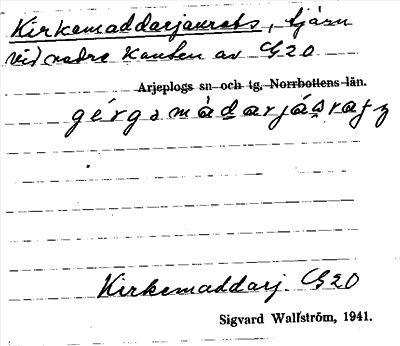 Kirkemaddarjaurats, tjärn
vid nedre kanten av G20
Arjeplogs sn och tg, Norrbottens län.
Kirkemaddarj. G20
Sigvard Wallström, 1941.